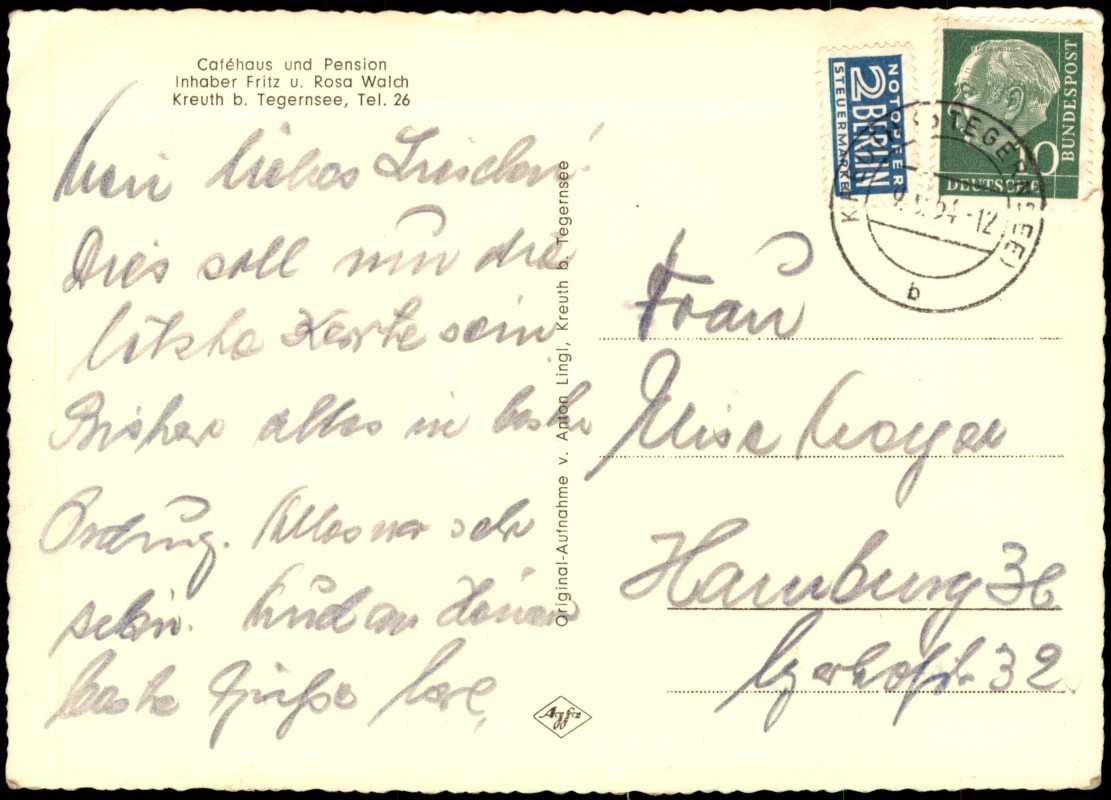 Caféhaus und Pension
Inhaber Fritz u. Rosa Walch
Kreuth b. Tegernsee, Tel. 26
Mein liebes Lieschen!
Dies soll nun die
letzte Karte sein
Bisher alles in bester
Ordnung. Alles war sehr
schön.
beste Grüße
Original-Aufnahme v. Anton Lingl, Kreuth b. Tegernsee
Agfa
NOTOPFER
2 BERLIN
STEUERMARKE
DEUTSCHE
BUNDESPOST
TEGERNSEE)
b
Frau
Hamburg 36
32